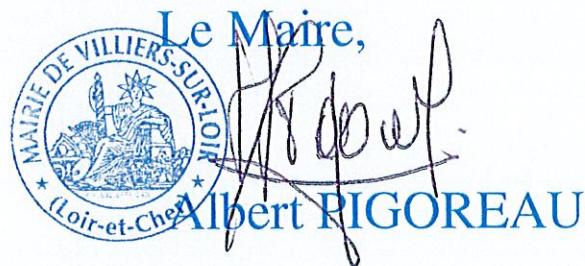 Le Maire,
MAIRIE DE VILLIERS-SUR-LOIR
★ (Loir-et-Cher) ★
Albert PIGOREAU